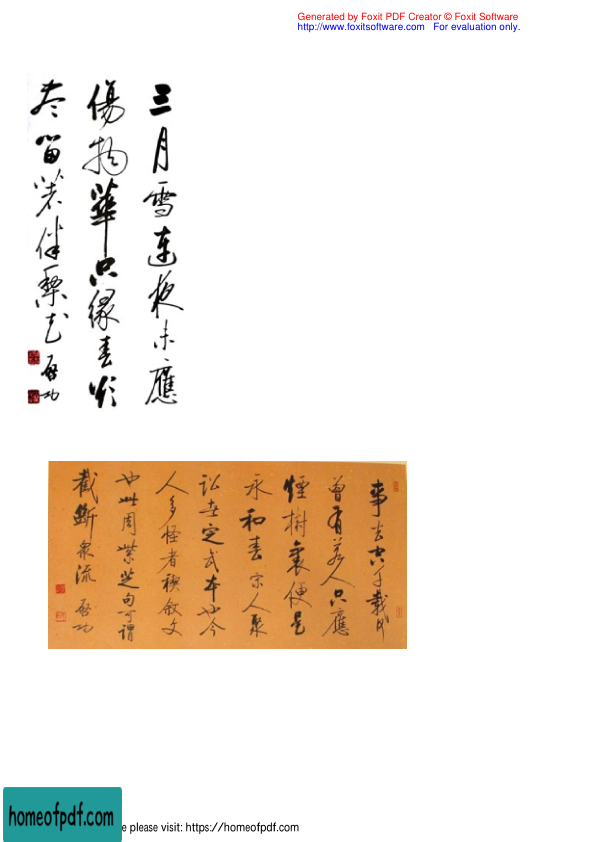 Generated by Foxit PDF Creator © Foxit Software
http://www.foxitsoftware.com For evaluation only.
三月雪連夜未應
傷物華只緣春欲
盡留著伴梨花 啟功
事去空千載
曾有若人只應
煙樹裏便是
永和春宋人聚
訟在定武本也今
人多怪者稧敘文
也此周紫芝句可謂
截斷衆流 啟功
homeofpdf.com
e please visit: https://homeofpdf.com